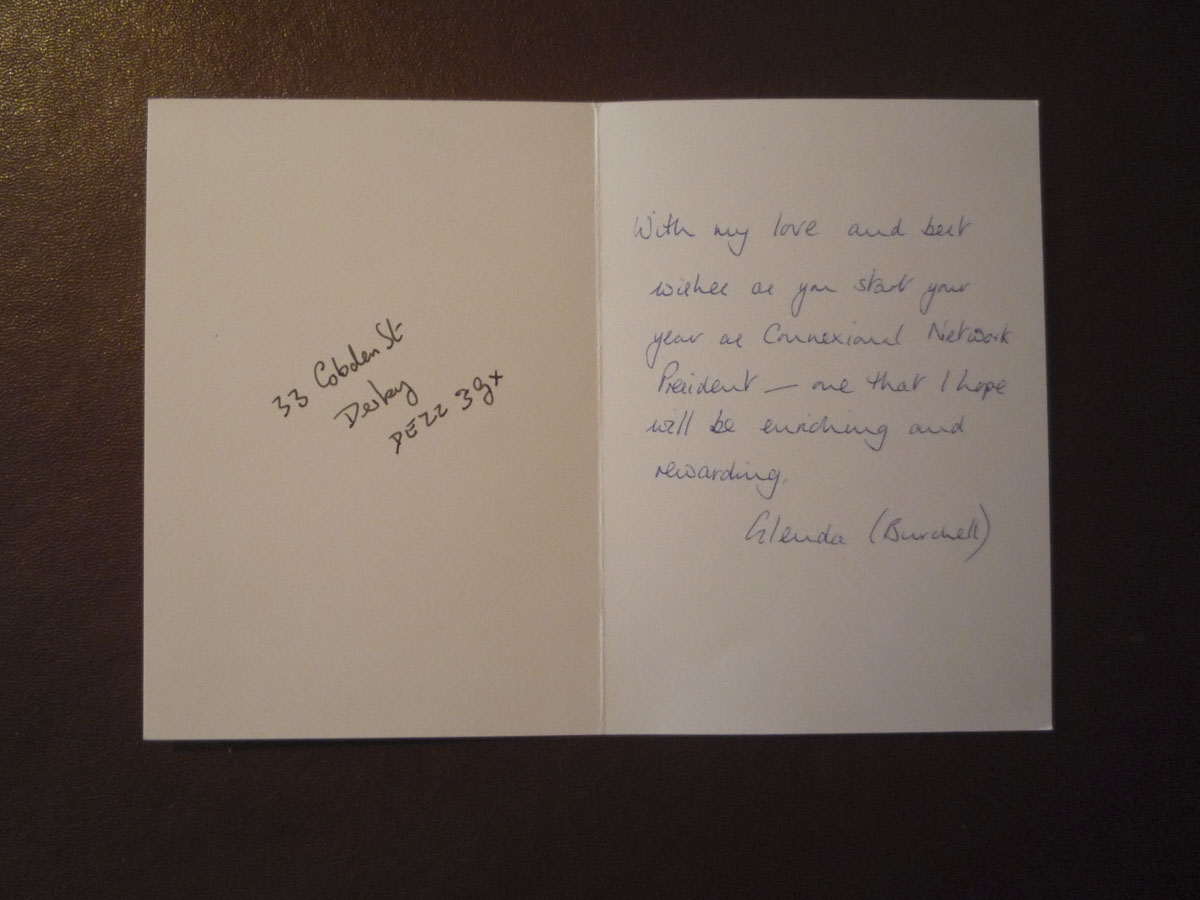 33 Cobden St
Derby
DE22 3gx
With my love and best
wishes as you start your
year as Connexional Network
President — one that I hope
will be enriching and
rewarding.
Glenda (Burchell)